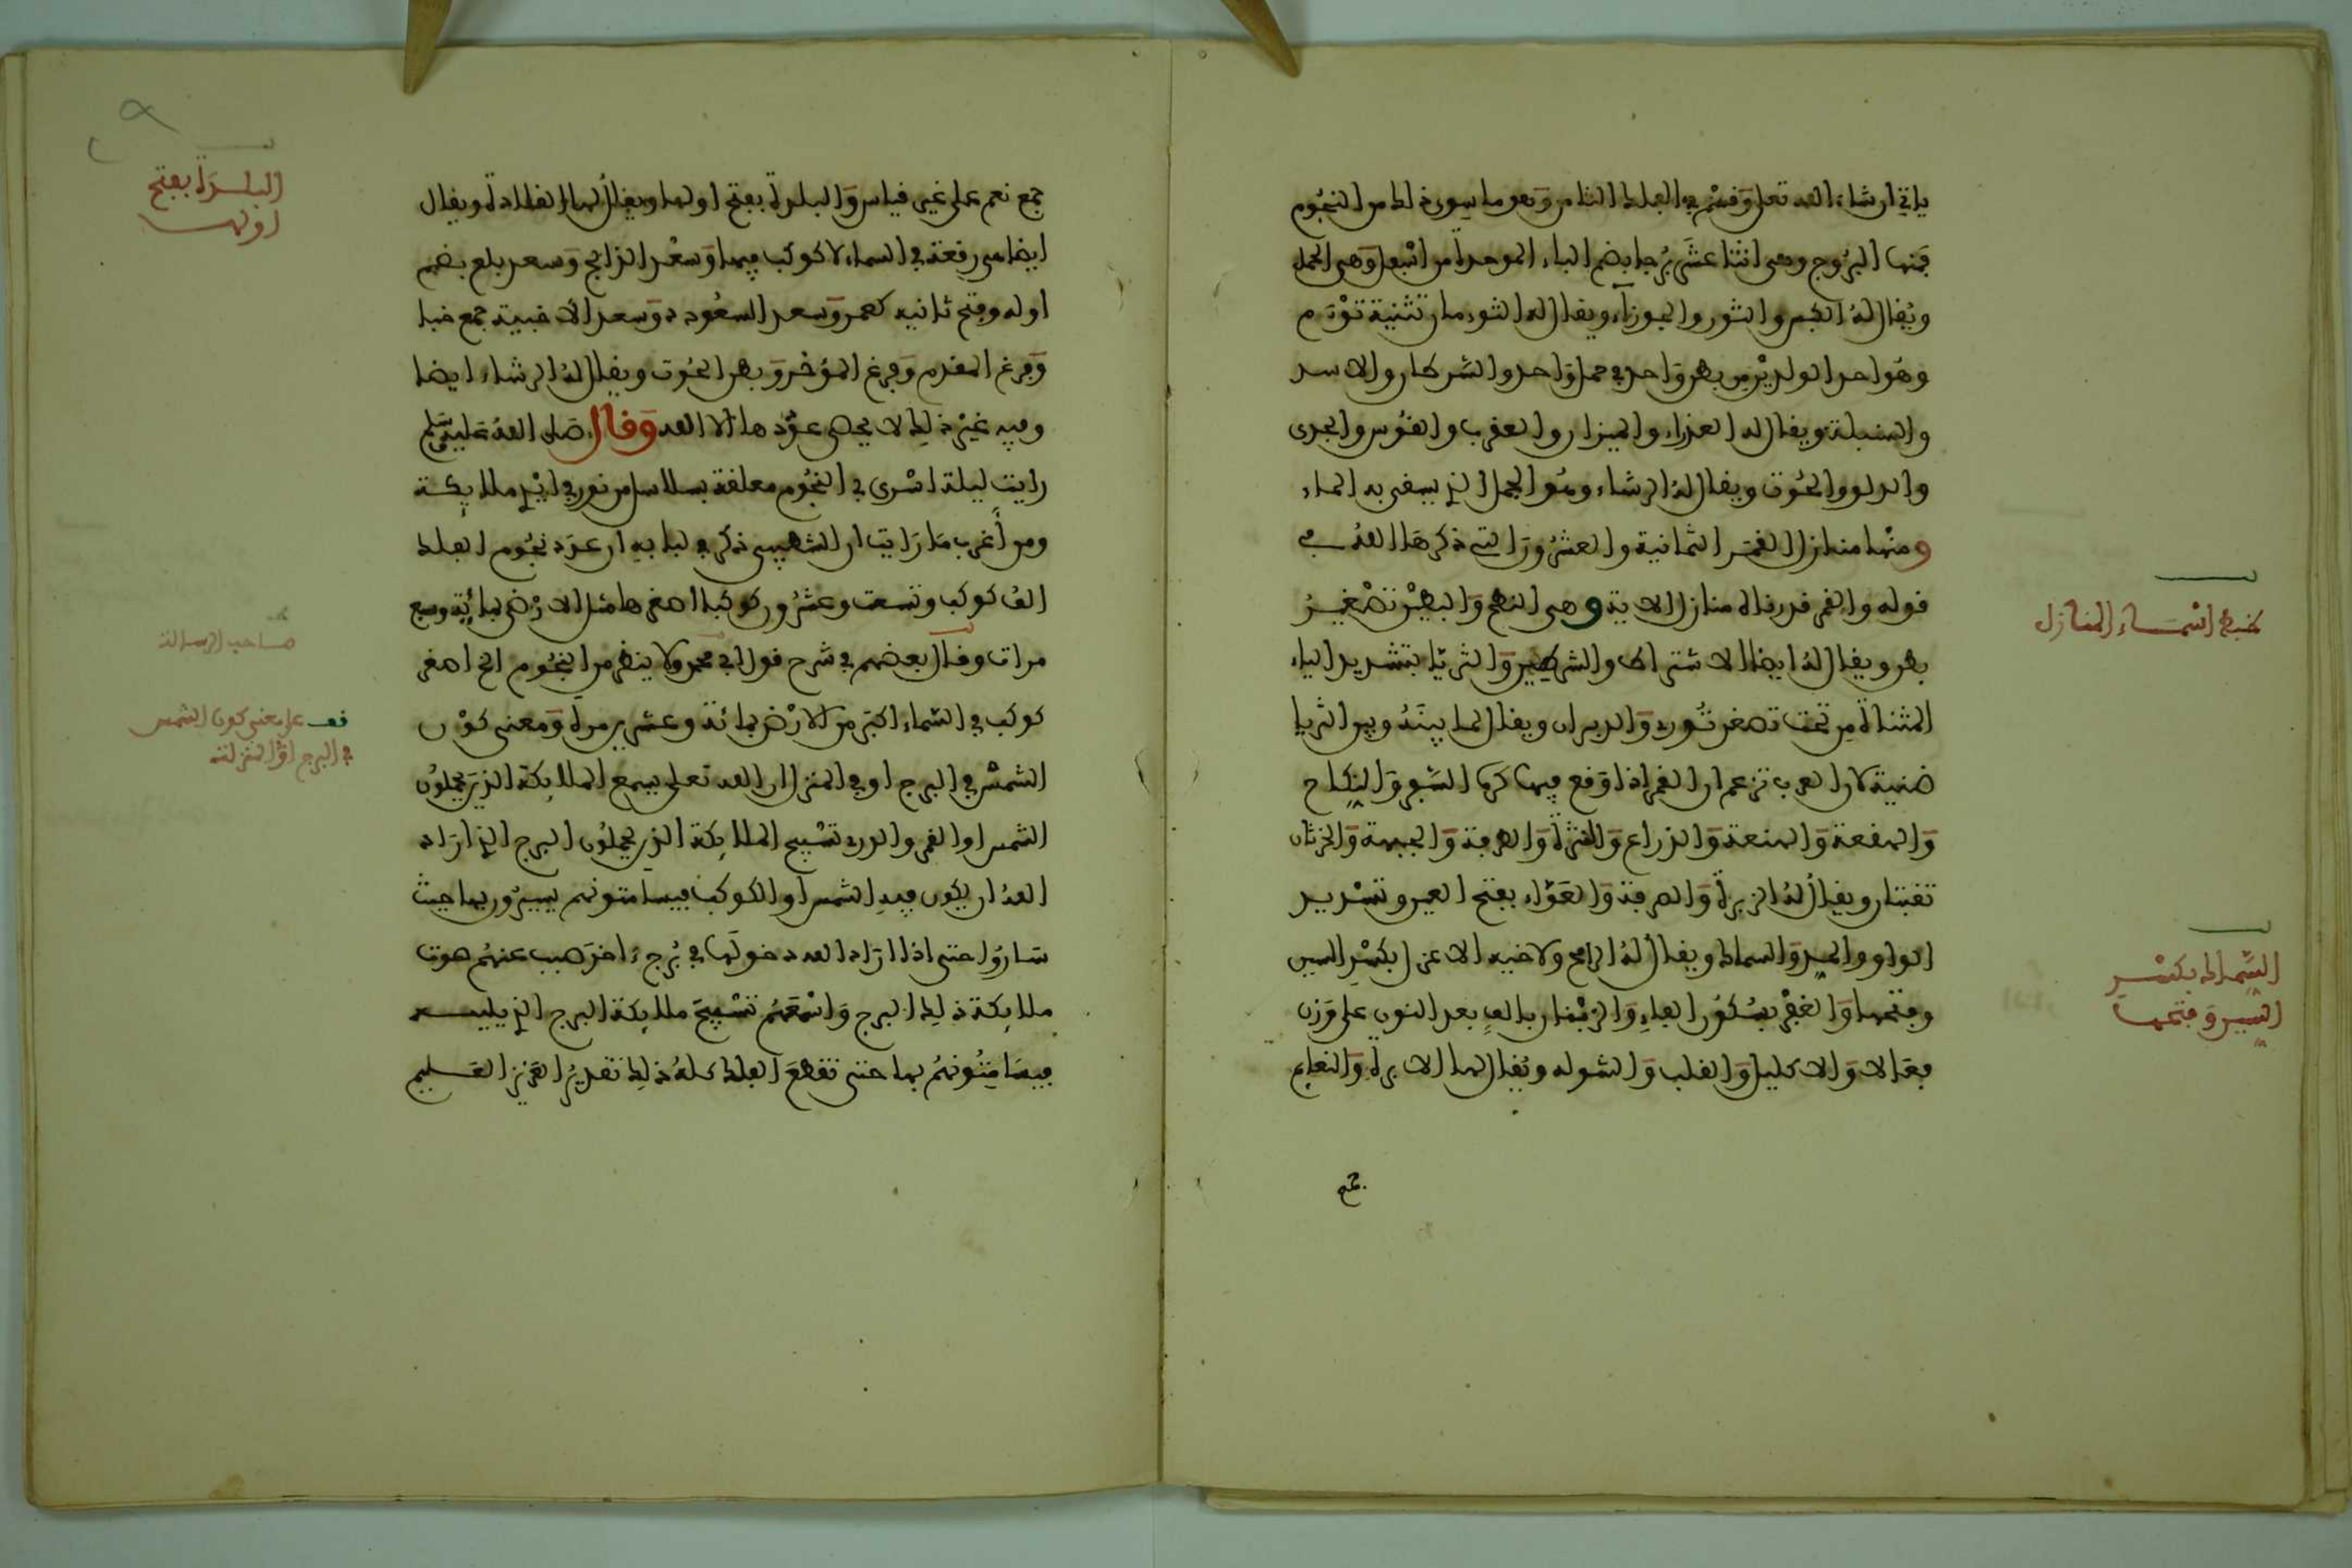 ياتي ان شاء الله تعلى وقسم في الفلك الثامن وهو ما سوى ذلك من النجوم
فمنها البروج وهى اثنتا عشر برجا بضم الباء الموحدة من اسفل وهى الحمل
ويقال له الكبش والثور والجوزاء ويقال له التوءمان تثنية توءم
وهو احد الولدين من بطن واحد في حمل واحد والسرطان والاسد
والسنبلة ويقال له العذراء والميزان والعقرب والقوس والجدى
والدلو والحوت ويقال له الرشاء وهو الحبل الذ يسقى به الماء
ومنها منازل القمر الثمانية والعشرون التي ذكرها الله في
قوله والقمر قدرناه منازل الاية وهى النطح والبطين تصغير
بطن ويقال له ايضا الاشتراط والشرطين والثريا بتشديد الياء
المثناة من تحت تصغر ثورى والدبران ويقال لما بينه وبين الثريا
ضنية لان العرب تزعم ان القمر اذا وقع فيها كره السفر والنكاح
والهقعة والهنعة والذراع والنثرة والطرفة والجبهة والخرثان
تفتتان ويقال له الزبرة والصرفة والعواء بفتح العين وتشديد
الواو والمد والسماك ويقال له الرامح ولاخيه الاعزل بكسر السين
وفتحها والغفر بسكون الفاء والزبنان بالف بعد النون على وزن
فعالا والاكليل والقلب والشوله ويقال لها الابرة والنعايم
جمع
ضبط اسماء المنازل
السماك بكسر
السين وفتحها
جمع نعم على غير قياس والبلدة بفتح اولها ويقال لها القلادة ويقال
ايضا هى رقعة في السماء لا كوكب فيها وسعد الذابح وسعد بلع بضم
اوله وفتح ثانيه كعمر وسعد السعود وسعد الاخبية جمع خبا
وفرغ المقدم وفرغ المؤخر وبطن الحوت ويقال له الرشاء ايضا
وفيه غير ذلك لا يحصى عددها الا الله وقال صلى الله عليه وسلم
رايت ليلة اسرى بي النجوم معلقة بسلاسل من نور في ايدي ملايكة
ومن أغرب ما رايت ان الشهيبى ذكر في لبابه ان عدد نجوم الفلك
الف كوكب وتسعت وعشرون كوكبا اصغرها مثل الارض بمائة وسبع
مرات وقال بعضهم في شرح قول ابي محمد ولا ينظر من النجوم الخ اصغر
كوكب في السماء اكبر من الارض بمائة وعشرين مرة ومعنى كون
الشمس في البرج او في المنزل ان الله تعلى يسمع الملايكة الذين يحملون
الشمس او القمر والدرى تسبيح الملايكة الذين يحملون البرج الذ اراد
الله ان يكون فيه الشمس او الكوكب فيسامتونهم يسيرون بها حيث
ساروا حتى اذا اراد الله دخولها في برج ءاخر هب عنهم صوت
ملايكة ذلك البرج واسمعهم تسبيح ملايكة البرج الذ يليه
فيسامتونهم بها حتى تقطع الفلك كله ذلك تقدير العزيز العليم
البلدة بفتح
اولها
صاحب الرسالة
قف على معنى كون الشمس
في البرج او المنزلة